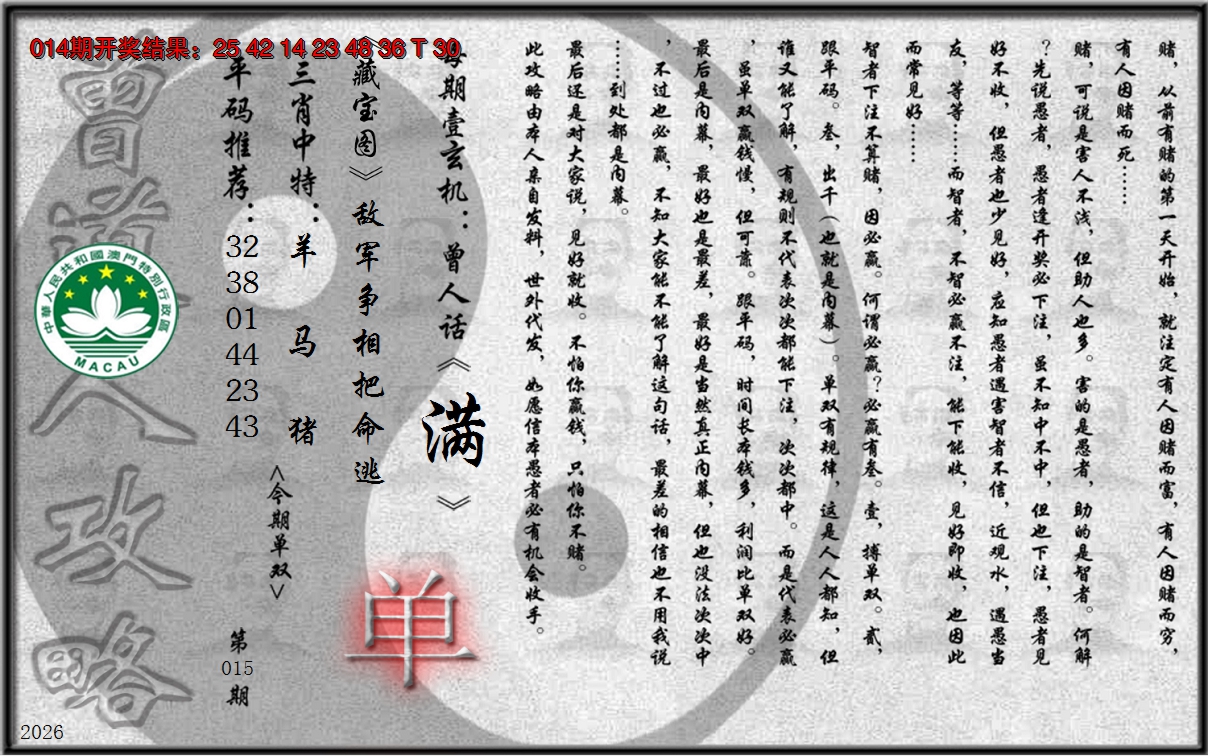 014期开奖结果：25 42 14 23 48 36 T 30
赌，从前有赌的第一天开始，就注定有人因赌而富，有人因赌而穷，
有人因赌而死……
赌，可说是害人不浅，但助人也多。害的是愚者，助的是智者。何解
？先说愚者，愚者逢开奖必下注，虽不知中不中，但也下注，愚者见
好不收，但愚者也少见好，应知愚者遇害智者不信，近观水，遇愚当
友，等等……而智者，不智必赢不注，能下能收，见好即收，也因此
而常见好……
智者下注不算赌，因必赢。何谓必赢？必赢有叁。壹，搏单双。贰，
跟平码。叁，出千（也就是内幕）。单双有规律，这是人人都知，但
谁又能了解，有规则不代表次次都能下注，次次都中。而是代表必赢
，虽单双赢钱慢，但可靠。跟平码，时间长本钱多，利润比单双好。
最后是内幕，最好也是最差，最好是当然真正内幕，但也没法次次中
，不过也必赢，不知大家能不能了解这句话，最差的相信也不用我说
……到处都是内幕。
最后还是对大家说，见好就收。不怕你赢钱，只怕你不赌。
此攻略由本人亲自发料，世外代发，如愿信本愚者必有机会收手。
每期壹玄机：曾人话《满》
《藏宝图》敌军争相把命逃
单
三肖中特：羊 马 猪
<今期单双>
平码推荐：32 38 01 44 23 43
第015期
曾道人攻略
中華人民共和國澳門特別行政區
MACAU
2026